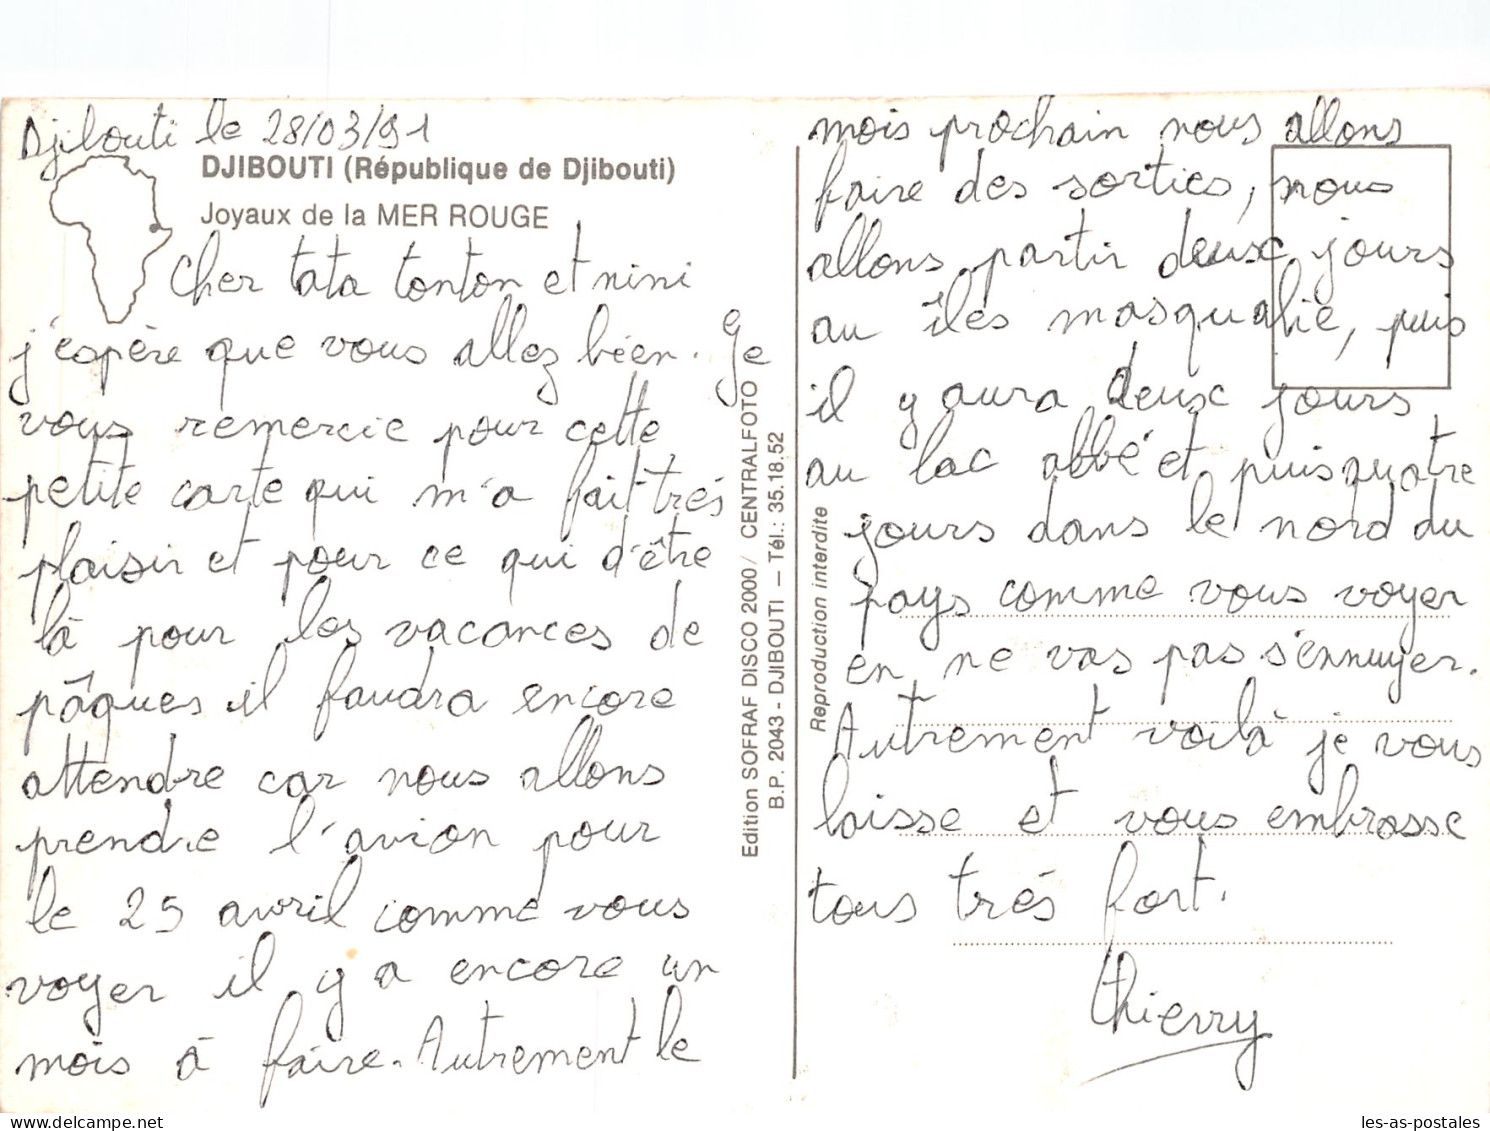 Djibouti le 28/03/91
DJIBOUTI (République de Djibouti)
Joyaux de la MER ROUGE
Cher tata tonton et nini
j'espère que vous allez bien. Je
vous remercie pour cette
petite carte qui m'a fait très
plaisir et pour ce qui d'être
là pour les vacances de
pâques il faudra encore
attendre car nous allons
prendre l'avion pour
le 25 avril comme vous
voyer il y a encore un
mois à faire. Autrement le
Edition SOFRAF DISCO 2000/ CENTRALFOTO
B.P. 2043 - DJIBOUTI — Tél.: 35.18.52
Reproduction interdite
mois prochain nous allons
faire des sorties, nous
allons partir deux jours
au îles masqualie, puis
il y aura deux jours
au lac abbé et puis quatre
jours dans le nord du
pays comme vous voyer
en ne vas pas s'ennuyer.
Autrement voilà je vous
laisse et vous embrasse
tous très fort.
thierry
les-as-postales